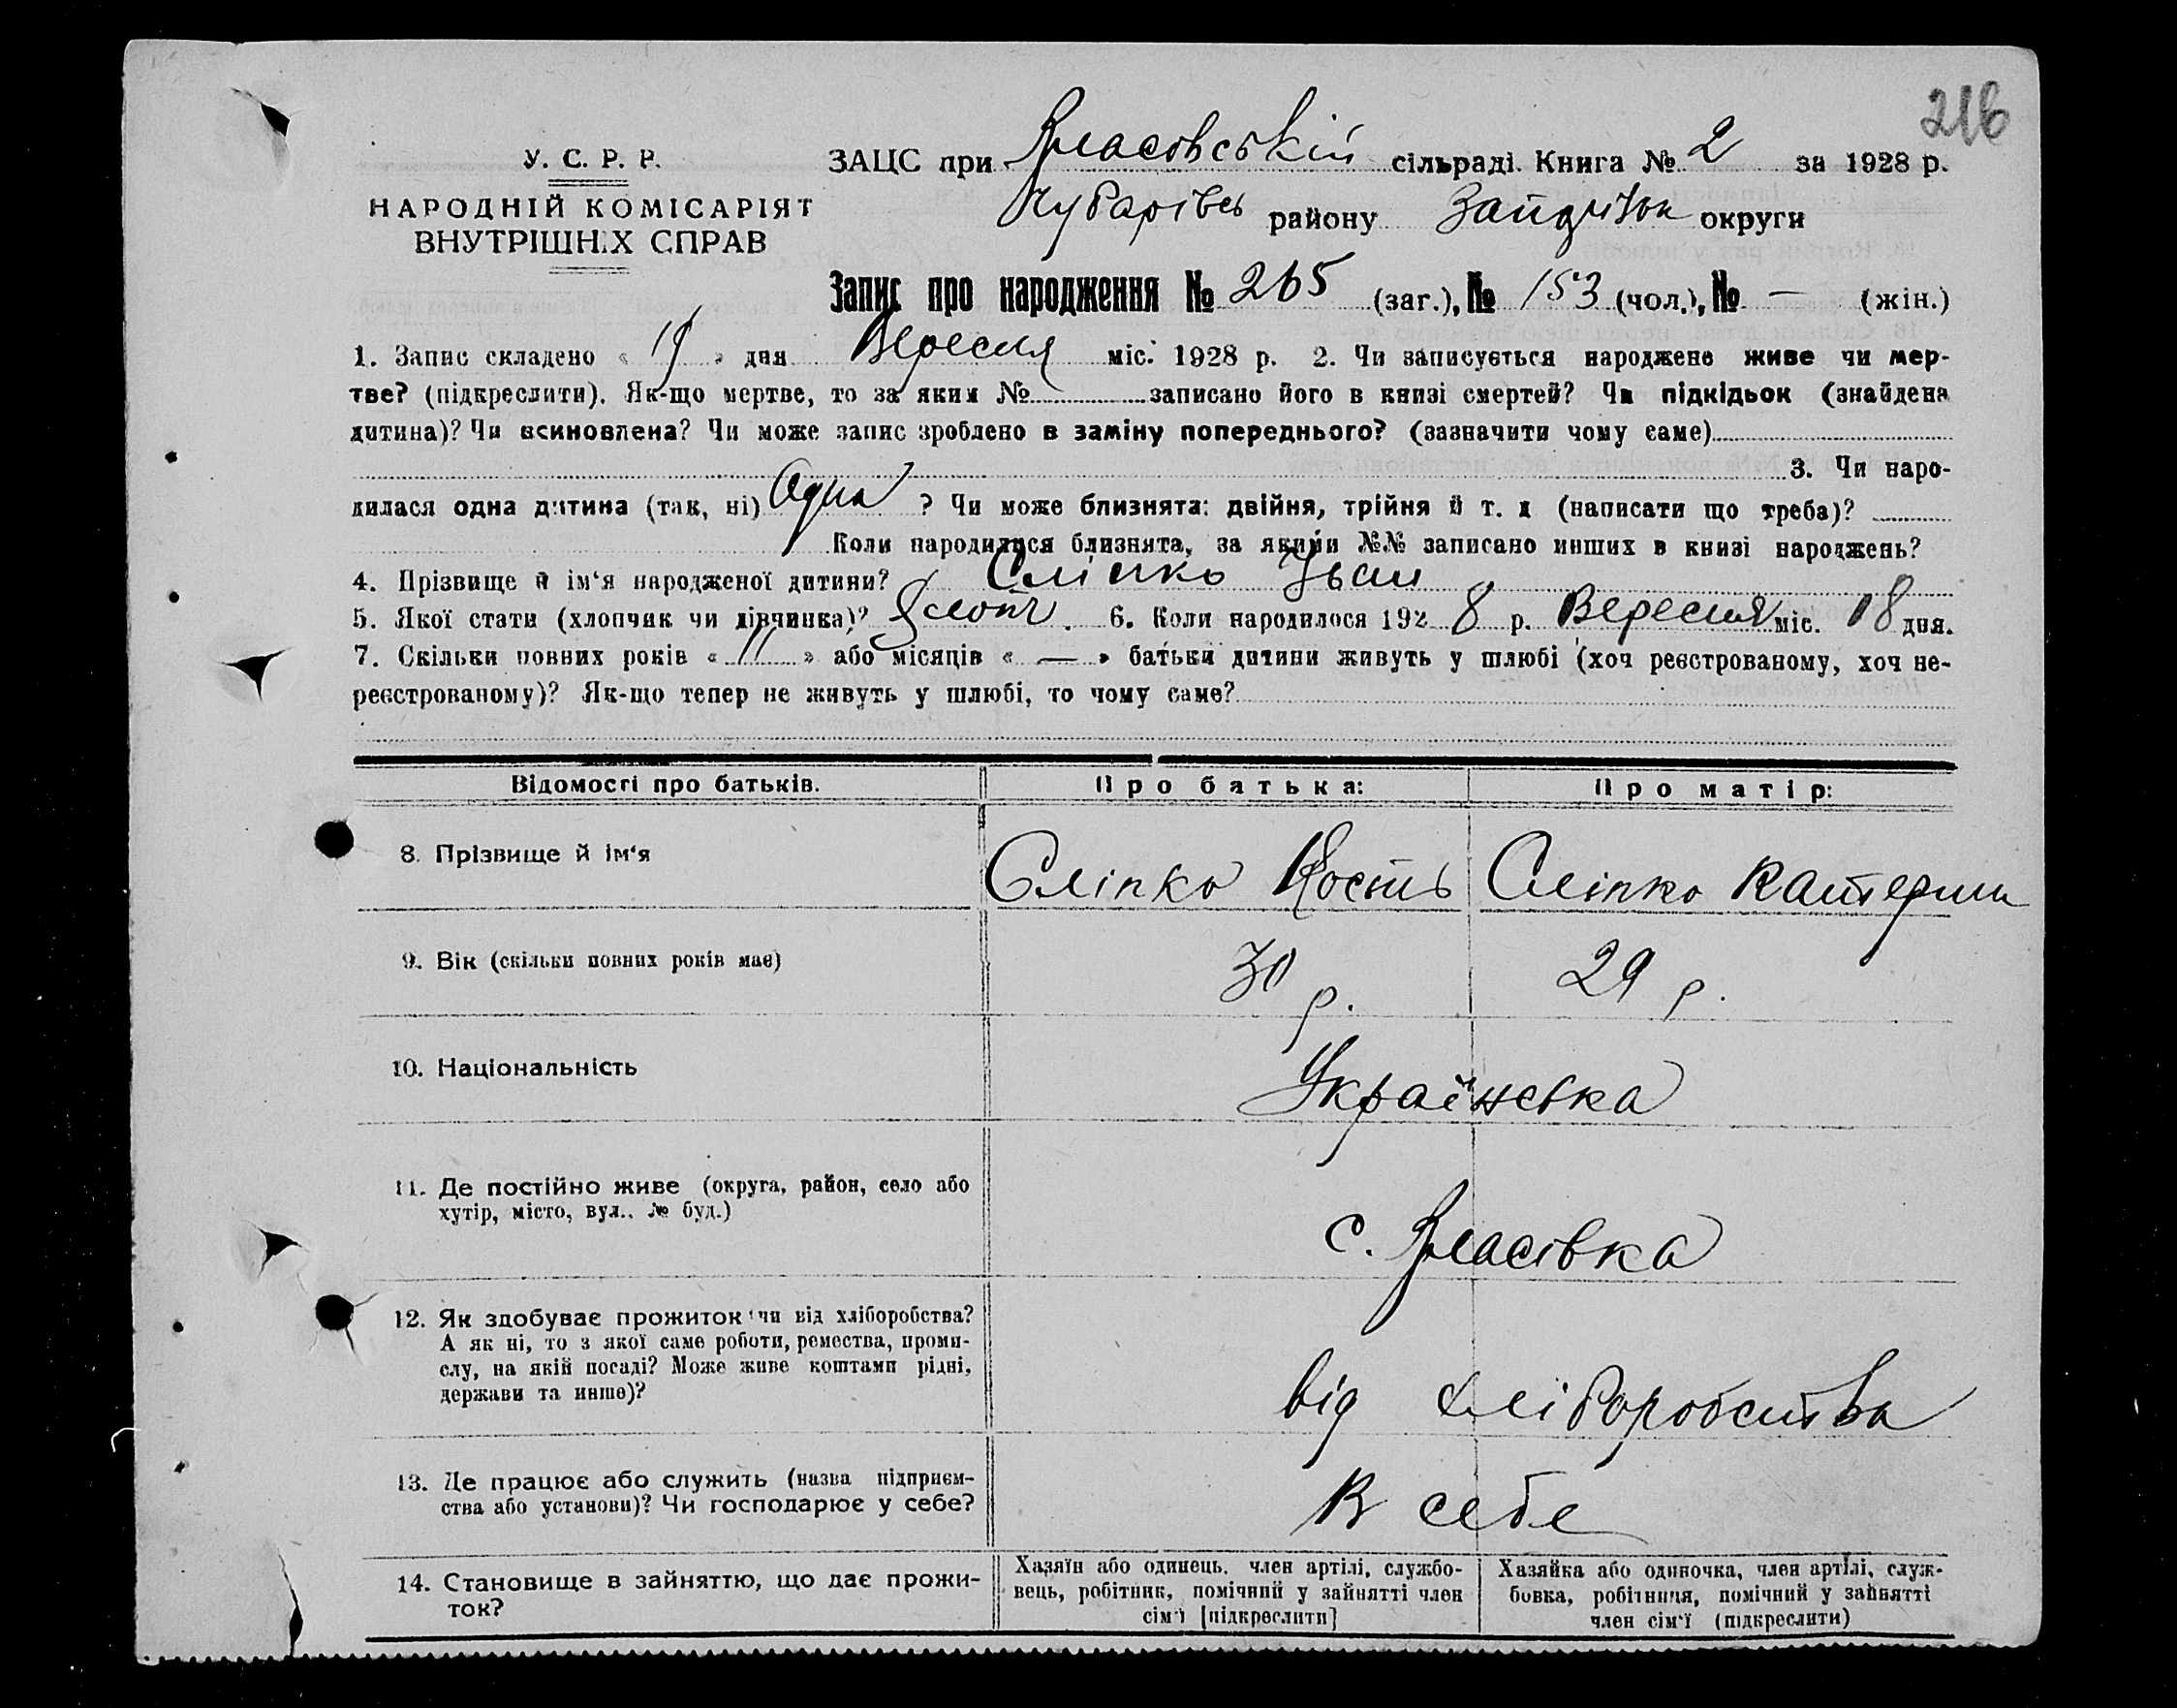 216
У. С. Р. Р.
НАРОДНІЙ КОМІСАРІЯТ
ВНУТРІШНІХ СПРАВ
ЗАЦС при Власовській сільраді Книга № 2 за 1928 р.
Чубарівсь району Запоріжж округи
Запис про народження № 265 (заг.), № 153 (чол.), № — (жін.)
1. Запис складено « 19 » дня Вересня міс. 1928 р. 2. Чи записується народжене живе чи мер-
тве? (підкреслити). Як-що мертве, то за яким № записано його в книзі смертей? Чи підкідьок (знайдена
дитина)? Чи всиновлена? Чи може запис зроблено в заміну попереднього? (зазначити чому саме)
3. Чи наро-
дилася одна дитина (так, ні) Одна ? Чи може близнята: двійня, трійня й т. д (написати що треба)?
Коли народилися близнята, за якими №№ записано инших в книзі народжень?
4. Прізвище й ім‘я народженої дитини? Сліпко Іван
5. Якої стати (хлопчик чи дівчинка)? Хлопч. 6. Коли народилося 192 8 р. Вересня міс. 18 дня.
7. Скільки повних років « 11 » або місяців « — » батьки дитини живуть у шлюбі (хоч реєстрованому, хоч не-
реєстрованому)? Як-що тепер не живуть у шлюбі, то чому саме?
Відомості про батьків. Про батька: Про матір:
8. Прізвище й ім‘я Сліпко Кость Сліпко Катерина
9. Вік (скільки повних років має) 30 р. 29 р.
10. Національність Українська
11. Де постійно живе (округа, район, село або
хутір, місто, вул., № буд.) с. Власівка
12. Як здобуває прожиток чи від хліборобства?
А як ні, то з якої саме роботи, ремества, проми-
слу, на якій посаді? Може живе коштами рідні,
держави та инше)? від хліборобства
13. Де працює або служить (назва підприєм-
ства або установи)? Чи господарює у себе? В себе
14. Становище в зайняттю, що дає прожи-
ток?
Хазяїн або одинець, член артілі, службо-
вець, робітник, помічний у зайнятті член
сім‘ї [підкреслити]
Хазяйка або одиночка, член артілі, служ-
бовка, робітниця, помічний у зайнятті
член сім‘ї (підкреслити)